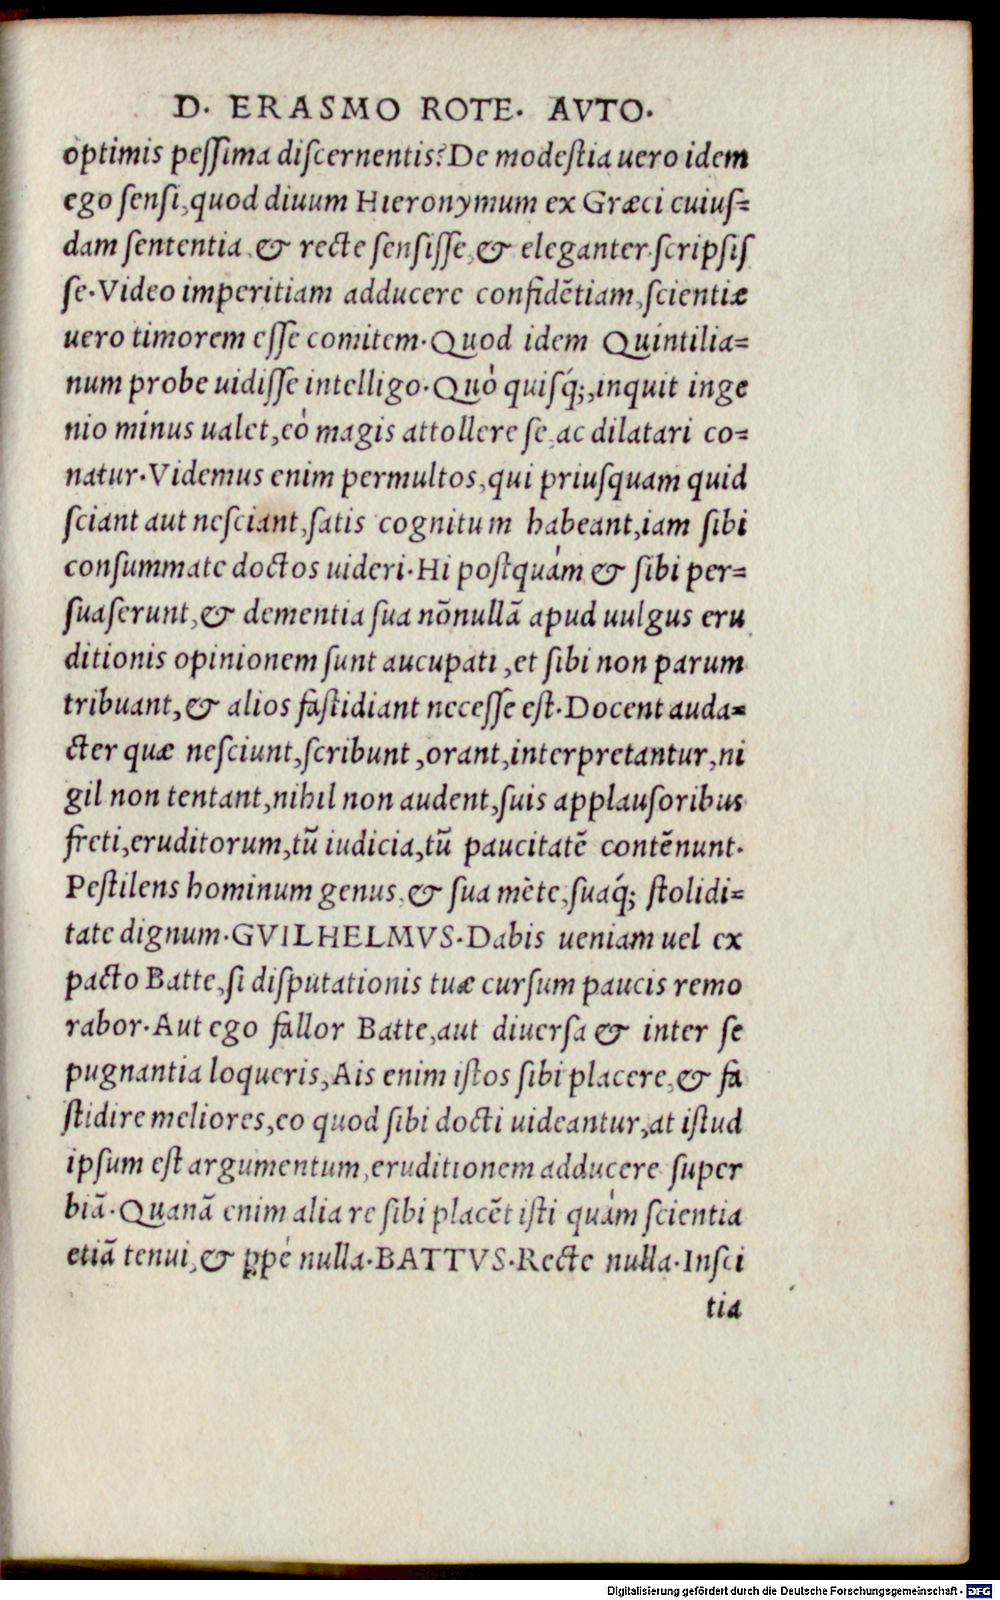 D. ERASMO ROTE. AVTO.
optimis peſſima diſcernentis? De modeſtia uero idem
ego ſenſi, quod diuum Hieronymum ex Græci cuiuſ=
dam ſententia, & recte ſenſiſſe, & eleganter ſcripſiſ
ſe. Video imperitiam adducere confidẽtiam, ſcientiæ
uero timorem eſſe comitem. Quod idem Quintilia=
num probe uidiſſe intelligo. Quò quiſq́;, inquit inge
nio minus ualet, eò magis attollere ſe, ac dilatari co=
natur. Videmus enim permultos, qui priuſquam quid
ſciant aut neſciant, ſatis cognitum habeant, iam ſibi
conſummate doctos uideri. Hi poſtquàm & ſibi per=
ſuaſerunt, & dementia ſua nõnullã apud uulgus eru
ditionis opinionem ſunt aucupati, et ſibi non parum
tribuant, & alios faſtidiant neceſſe eſt. Docent auda=
cter quæ neſciunt, ſcribunt, orant, interpretantur, ni
gil non tentant, nihil non audent, ſuis applauſoribus
freti, eruditorum, tũ iudicia, tũ paucitatẽ contẽnunt.
Peſtilens hominum genus, & ſua mẽte, ſuaq́; ſtolidi=
tate dignum. GVILHELMVS. Dabis ueniam uel ex
pacto Batte, ſi diſputationis tuæ curſum paucis remo
rabor. Aut ego fallor Batte, aut diuerſa & inter ſe
pugnantia loqueris, Ais enim iſtos ſibi placere, & fa
ſtidire meliores, eo quod ſibi docti uideantur, at iſtud
ipſum eſt argumentum, eruditionem adducere ſuper
biã. Quanã enim alia re ſibi placẽt iſti quàm ſcientia
etiã tenui, & ꝓpè nulla. BATTVS. Recte nulla. Inſci
tia
Digitalisierung gefördert durch die Deutsche Forschungsgemeinschaft - DFG